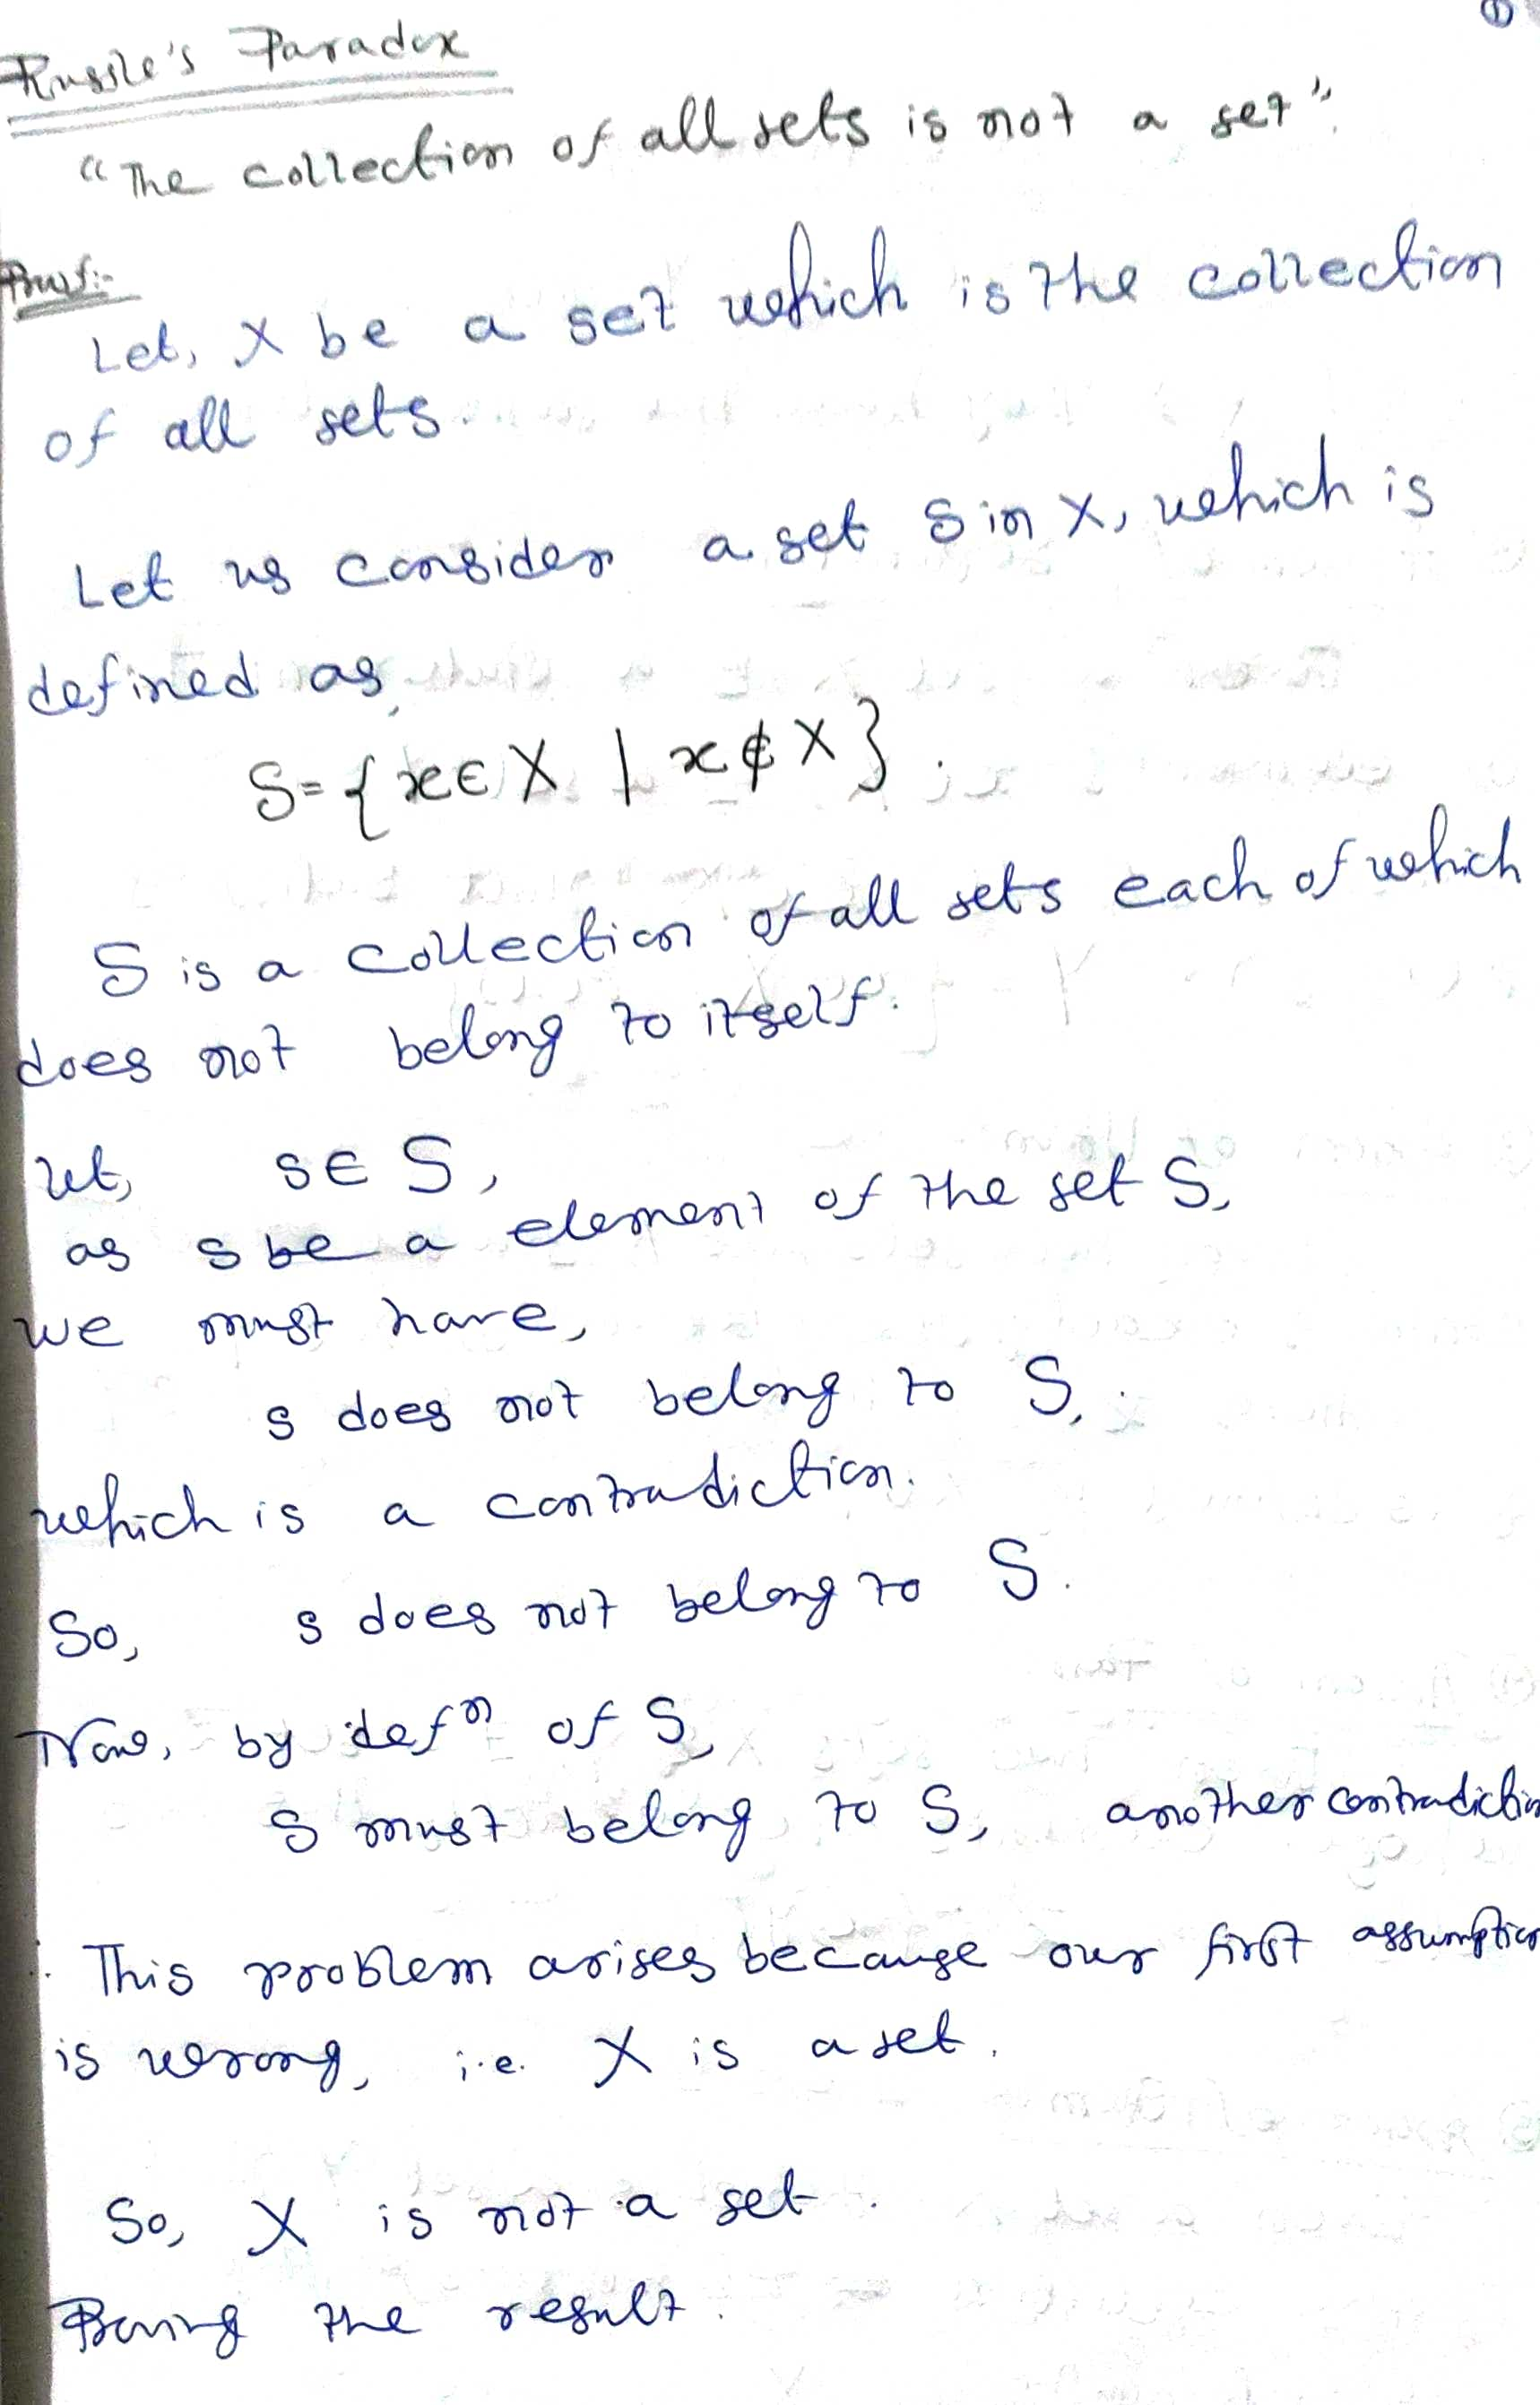 ①
Russile's Paradox
"The collection of all sets is not a set".
Proof:-
Let, X be a set which is the collection
of all sets.
Let us consider a set S in X, which is
defined as,
S = { x ∈ X | x ∉ X } .
S is a collection of all sets each of which
does not belong to itself.
let, s ∈ S,
as s be a element of the set S,
we must have,
s does not belong to S,
which is a contradiction.
So, s does not belong to S.
Now, by defⁿ of S,
S must belong to S, another contradiction
∴ This problem arises because our first assumption
is wrong, i.e. X is a set.
So, X is not a set.
Proving the result.